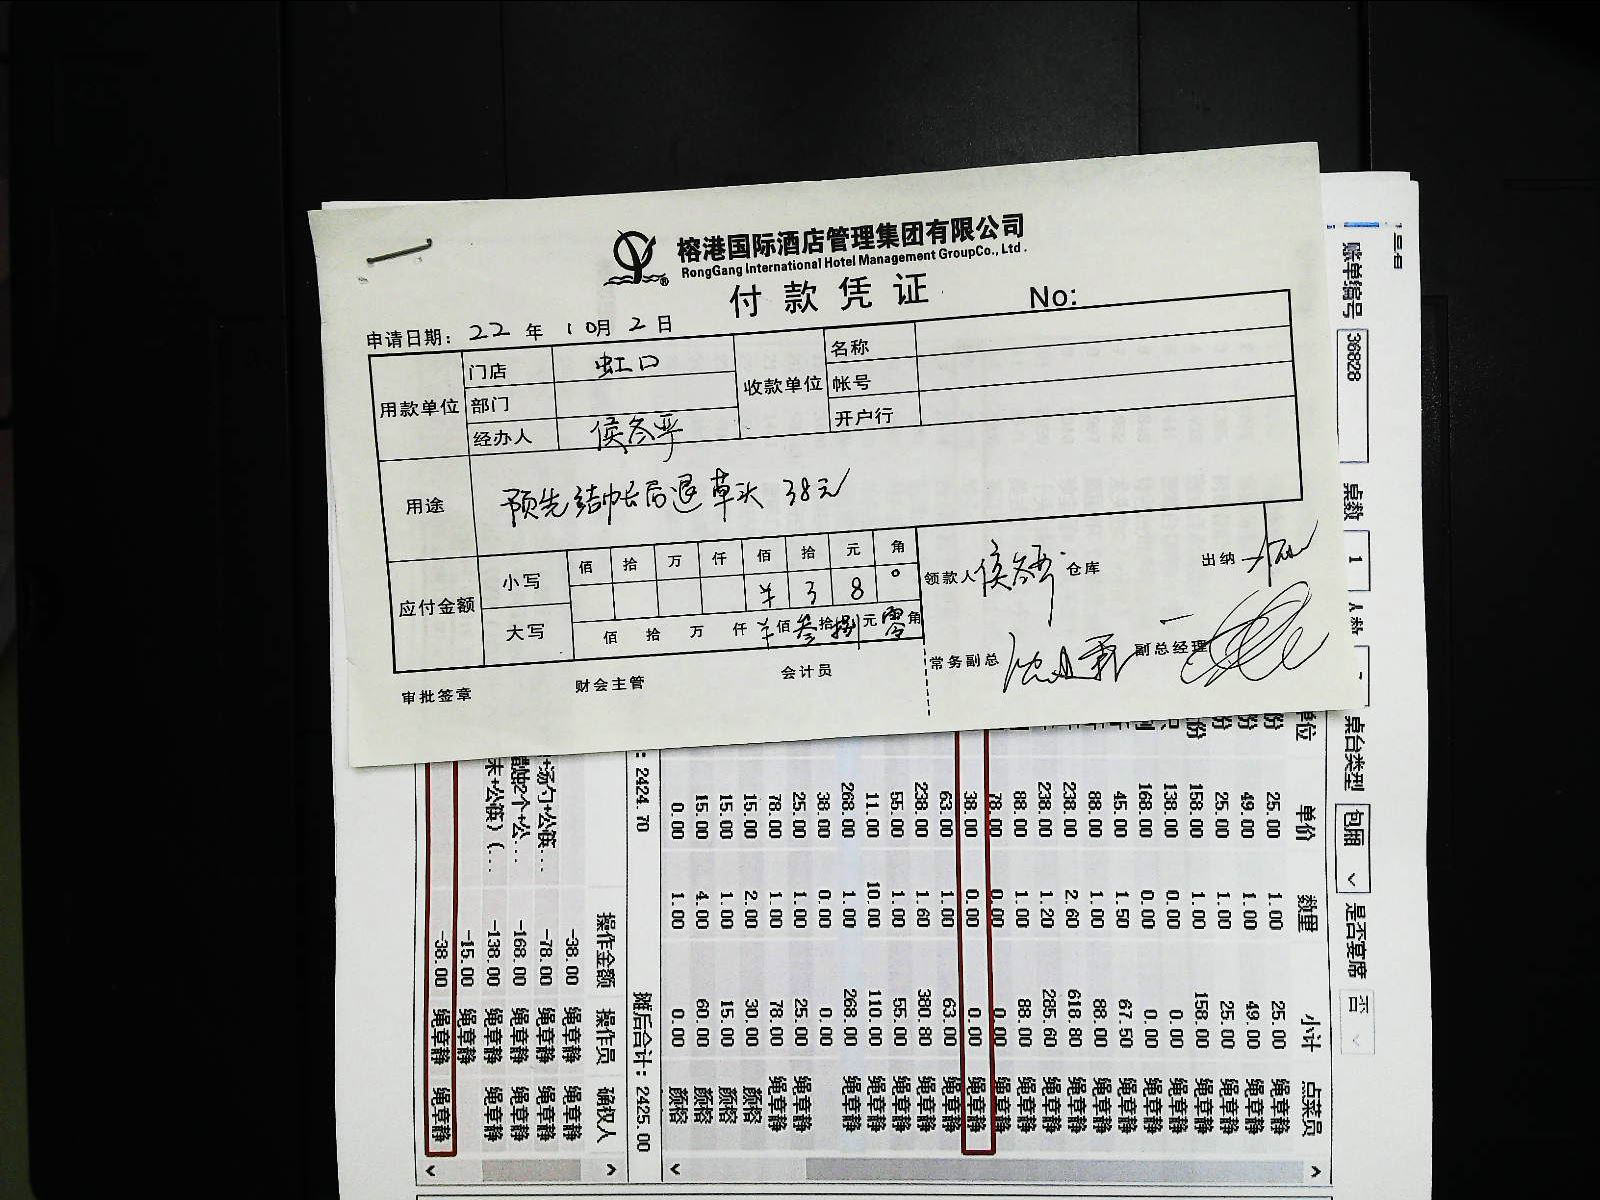 榕港国际酒店管理集团有限公司
RongGang International Hotel Management GroupCo., Ltd.
付款凭证 No:
申请日期: 22年 10月 2日
用款单位 门店 虹口 收款单位 名称
部门 帐号
经办人 侯冬平 开户行
用途 预先结帐后退草头 38元
应付金额 小写 佰 拾 万 仟 佰 拾 元 角
¥ 3 8 0
大写 佰 拾 万 仟 ¥佰 叁拾 捌元 零角
领款人 侯冬平 仓库 出纳
常务副总 副总经理
审批签章 财会主管 会计员
账单编号 36828 桌数 1 人数 桌台类型 包厢 是否宴席 否
单位 单价 数量 小计 点菜员
份 25.00 1.00 25.00 绳章静
份 49.00 1.00 49.00 绳章静
份 25.00 1.00 25.00 绳章静
份 158.00 1.00 158.00 绳章静
138.00 0.00 0.00 绳章静
168.00 0.00 0.00 绳章静
45.00 1.50 67.50 绳章静
88.00 1.00 88.00 绳章静
238.00 2.60 618.80 绳章静
238.00 1.20 285.60 绳章静
88.00 1.00 88.00 绳章静
78.00 0.00 0.00 绳章静
38.00 0.00 0.00 绳章静
63.00 1.00 63.00 绳章静
238.00 1.60 380.80 绳章静
55.00 1.00 55.00 绳章静
11.00 10.00 110.00 绳章静
268.00 1.00 268.00 绳章静
38.00 0.00 0.00
25.00 1.00 25.00 绳章静
78.00 1.00 78.00 绳章静
15.00 2.00 30.00 颜榕
15.00 1.00 15.00 颜榕
15.00 4.00 60.00 颜榕
0.00 1.00 0.00 颜榕
: 2424.70 摊后合计: 2425.00
操作金额 操作员 确权人
-38.00 绳章静 绳章静
+汤勺+公筷... -78.00 绳章静 绳章静
蜡烛2个+公... -168.00 绳章静 绳章静
末+公筷) (... -138.00 绳章静 绳章静
-15.00 绳章静 绳章静
-38.00 绳章静 绳章静